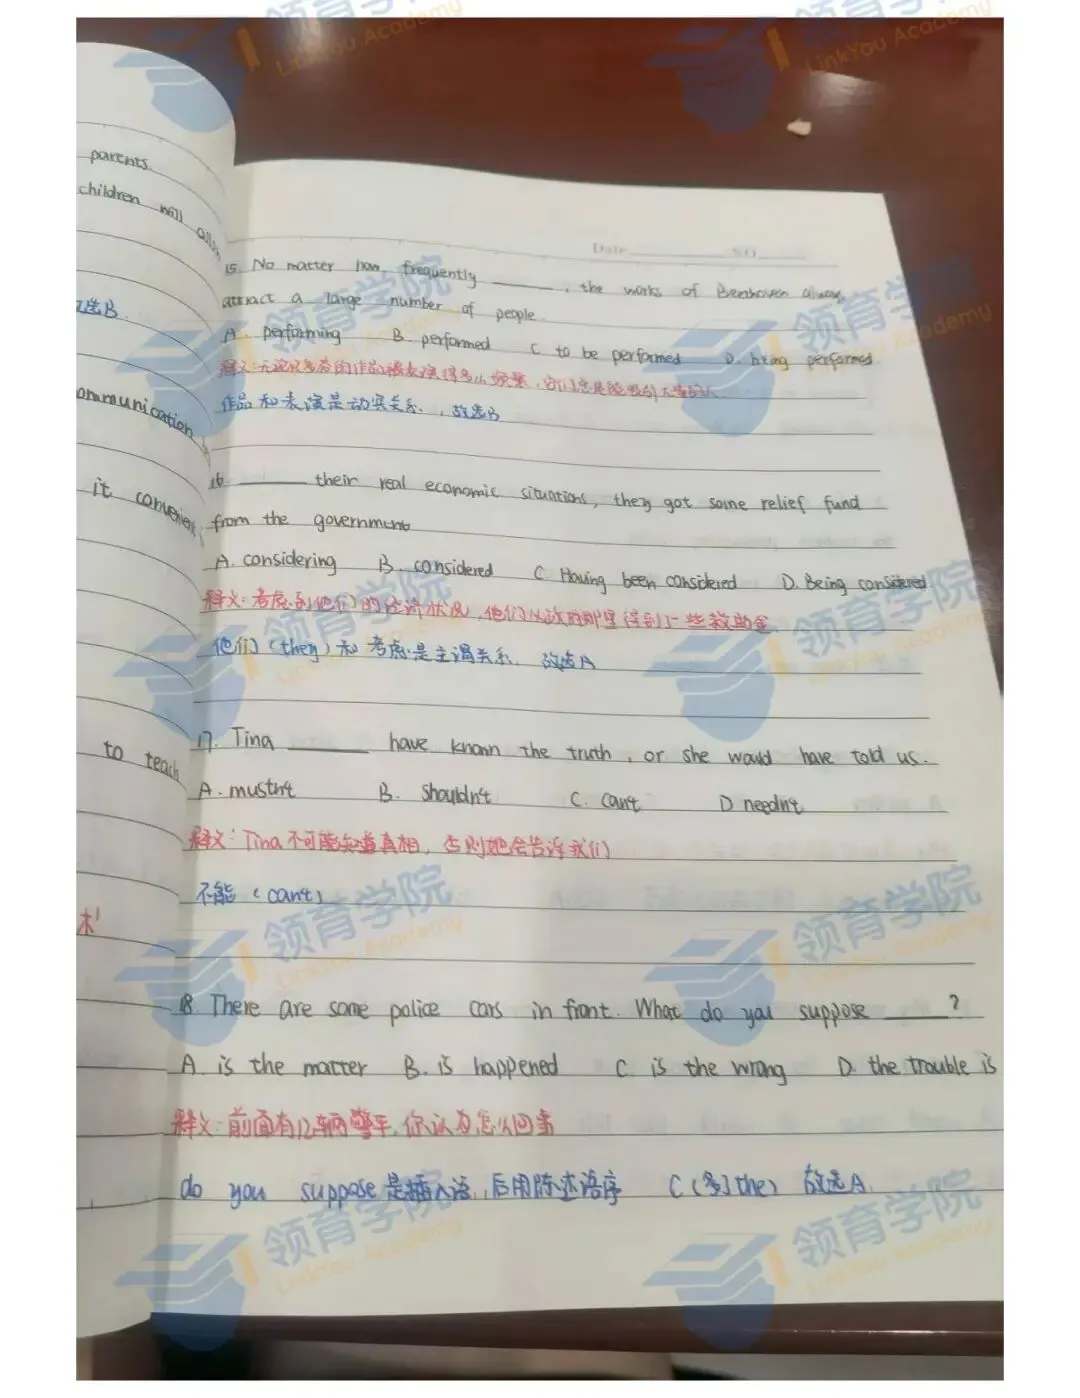 parents.
children will
选B
communication
it convenient
to teach
术
Date NO
15. No matter how frequently ______, the works of Beethoven always
attract a large number of people
A. performing B. performed C to be performed D. being performed
作品和表演是动宾关系, 故选B
16. ______ their real economic situations, they got some relief fund
from the government
A. considering B. considered C Having been considered D. Being considered
释义: 考虑到他们的经济状况, 他们从政府那里得到了一些救助金
他们(they)和考虑是主谓关系. 故选A
17. Tina ______ have known the truth, or she would have told us.
A. mustn't B. shouldn't C. can't D needn't
释义: Tina不可能知道真相, 否则她会告诉我们
不能 (can't)
18. There are some police cars in front. What do you suppose ______?
A. is the matter B. is happened C. is the wrong D. the trouble is
释义: 前面有几辆警车, 你认为怎么回事
do you suppose 是插入语, 后用陈述语序 C(多]the) 故选A.
领育学院
LinkYou Academy